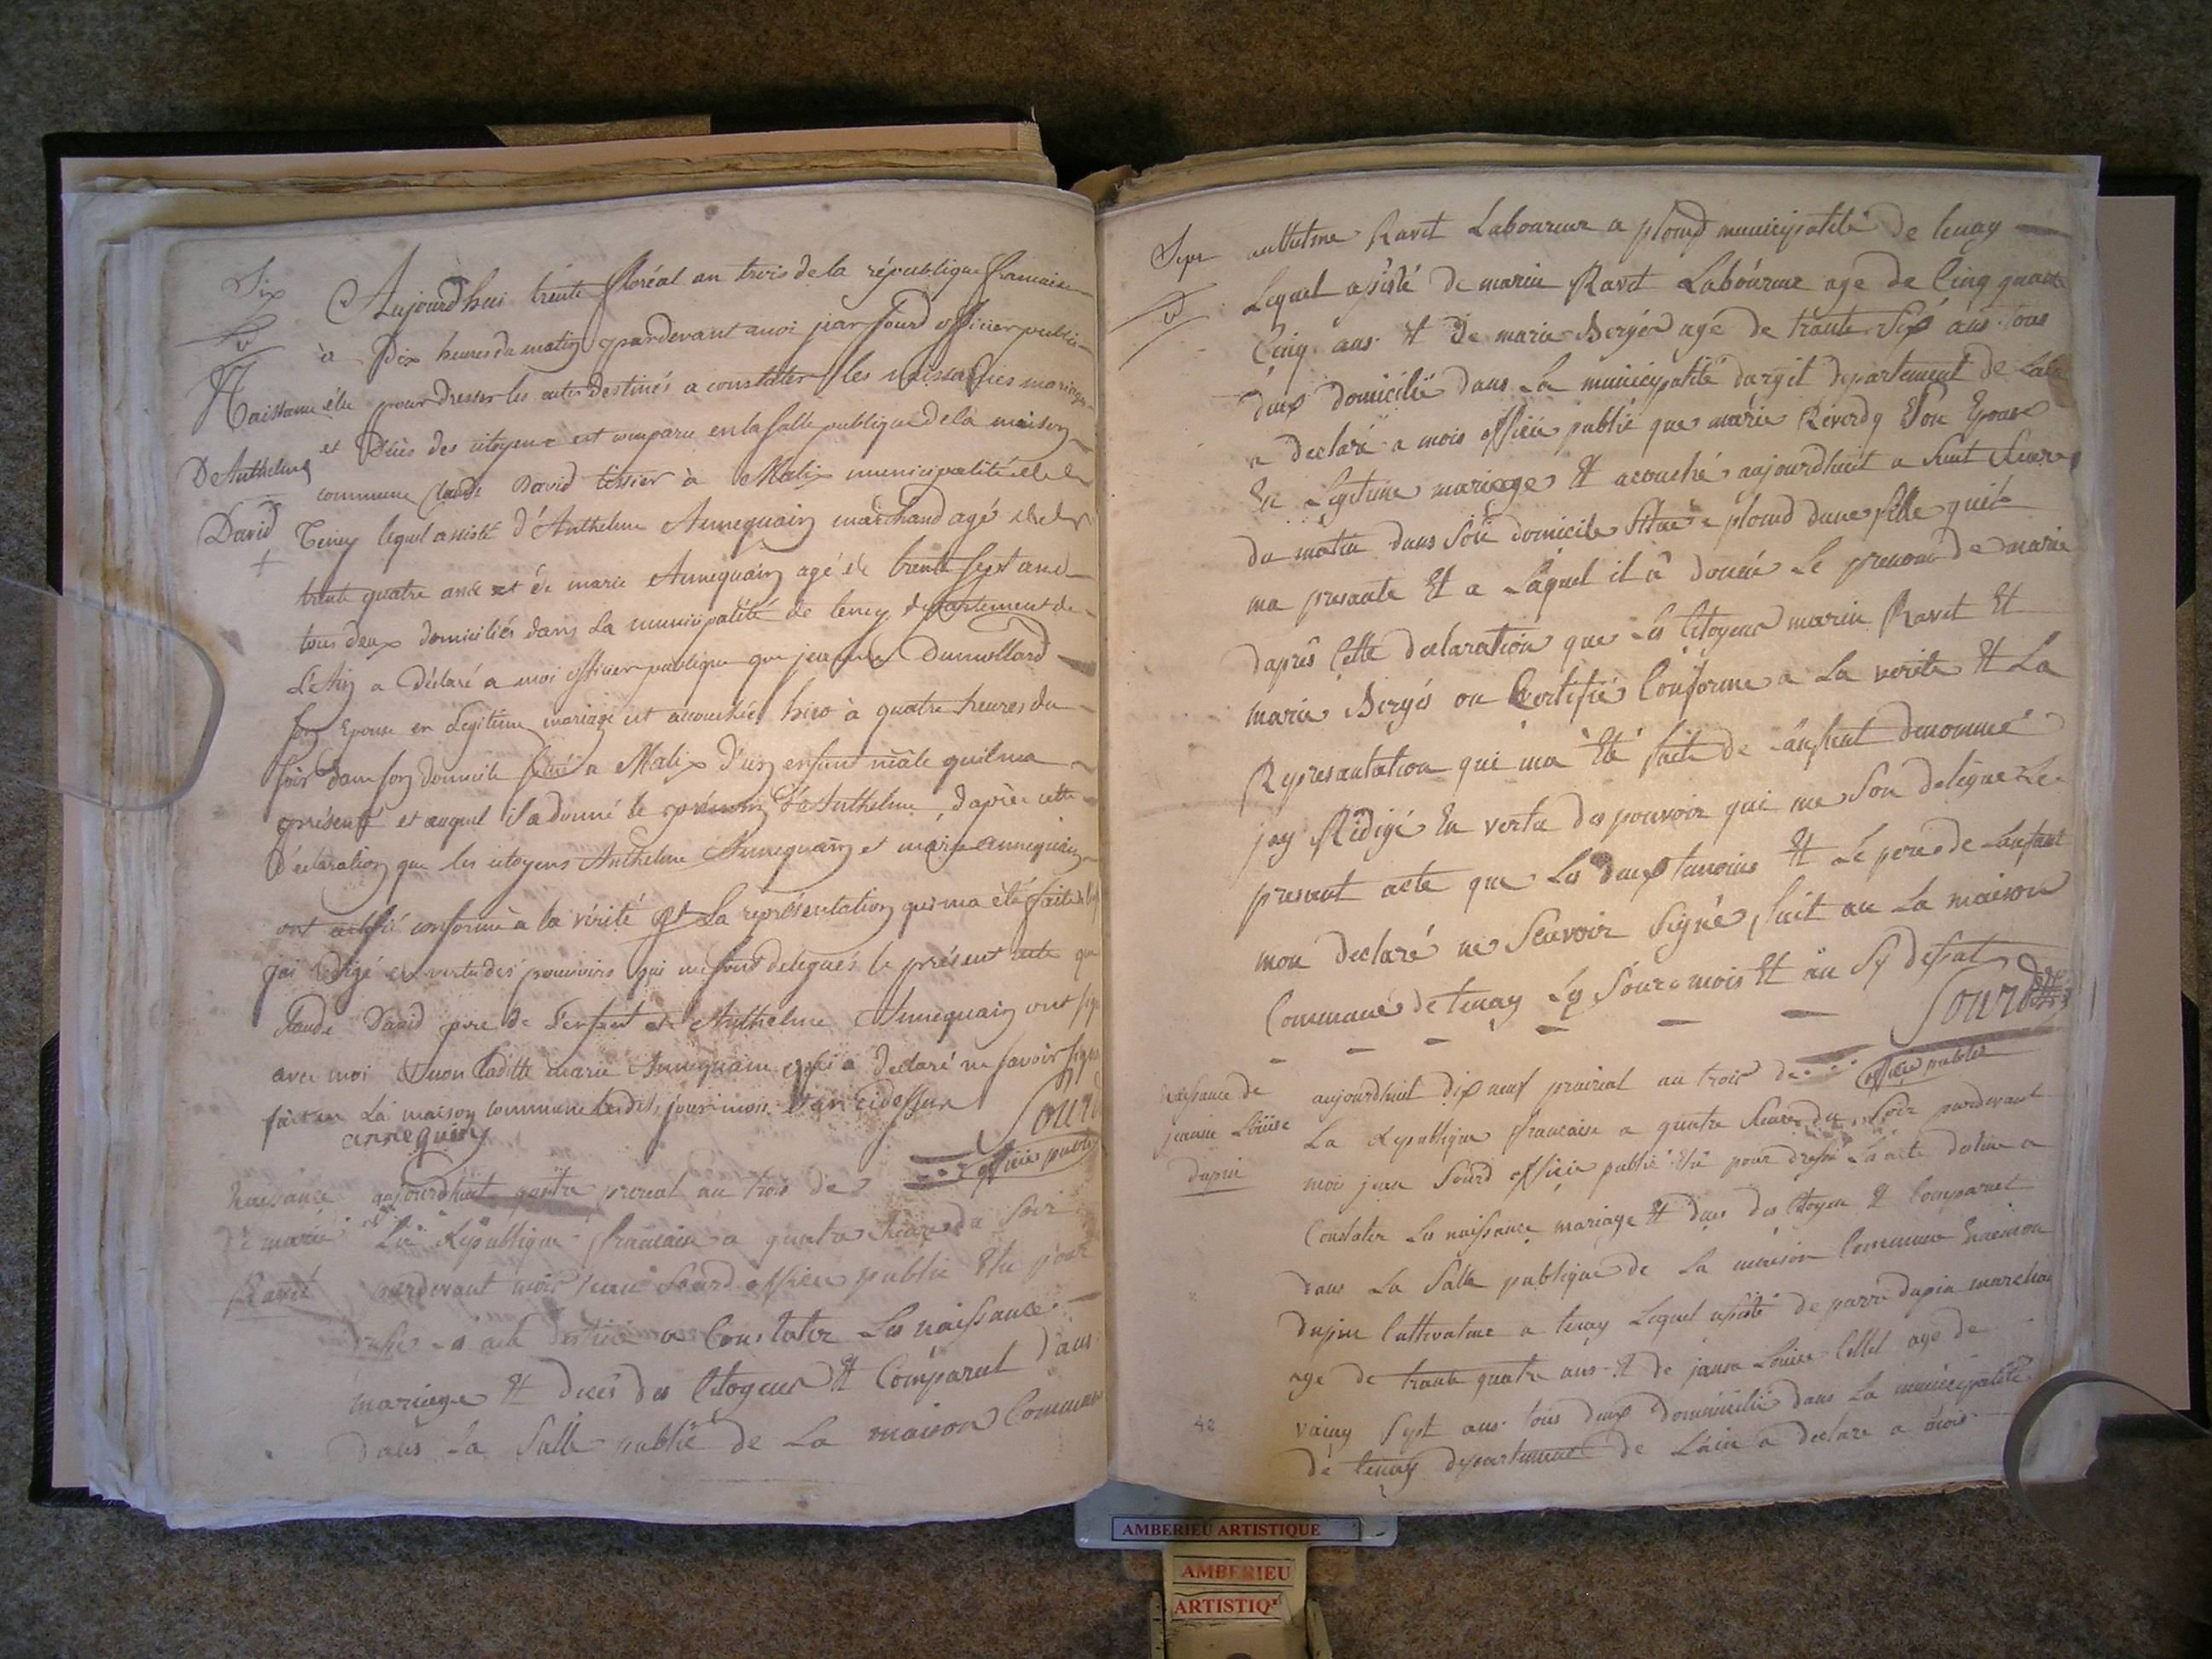 Six
Aujourd'hui trente floréal an trois de la république francaise
à Dix heures du matin pardevant moi jean Sourd officier public
Naissance
élu pour dresser les actes destinés a constater les naissances mariages
et Décès des citoyens est comparu en la salle publique de la maison
De Anthelme
commune Claude David tissier à Malix municipalité de
David
Teney lequel assisté d'Anthelme Annequain marchand agé de
trente quatre ans et de marie Annequain agé de trente sept ans
tous deux domiciliés dans la municipalité de teney département de
L'Ain a Déclaré a moi officier publique que jeanne Dumollard
son Epouse en Legitime mariage est acouchée hier à quatre heures du
soir dans son domicile situé a Malix d'un enfant mâle qu'il ma
présenté et auquel il a donné le prénom d'Anthelme, d'après cette
Déclaration que les citoyens Anthelme Annequain et marie annequain
ont certifié conforme à la vérité et La représentation qui ma été faite
jai redigé en vertu des pouvoirs qui me sont delegués le présent acte que
Claude David pere de L'enfant et Anthelme Annequain ont
avec moi et non laditte marie Annequain qui a declaré ne savoir signer
fait en La maison commune lesdits jour mois et an cidessus
annequain
Sourd
officie public
Naissance
aujourdhuit prereal an trois de
de marie
La Republique francaise a quatre heure du soir
Ravet
pardevant mois jean Sourd officie public Elu pour
a Constater Les naissance
mariage Et deces des Citoyens Et Comparut dans
dans La Salle public de La maison Commune
Sept
anthelme Ravet Laboureur a plomd municipalité de tenay
Lequel asisté de marin Ravet Laboureur age de Cinq quante
Cinq ans Et de marie Berger agé de trante Six ans tous
deux domicilié dans La municipalité dargit departement de Lain
a declaré a mois officie public que marie Reverdy Son Epouse
En Legitime mariage Et acouché aujourdhuit a huit heure
du matin dans Son domicile Situé a plomd dune fille quil
ma presante Et a Laquel il a donné Le prenom de marie
daprès Cette declaration que Les Citoyens marin Ravet Et
marie Berger on Certifié Conforme a La verite Et La
Represantation qui ma Eté faite de Lanfent denommé
jay Rédigé En vertu des pouvoir qui me Son delégué Le
present acte que Les deux temoins Et Le pere de Lanfant
mon declaré ne Scavoir Signé, fait au La maison
Commune de tenay Les Jour mois Et an Sy desut
Sourd
officie public
naissance de
aujourdhuit dix neuf prairial an trois de
jeanne Louise
La Republique francaise a quatre heure du Soir pardevant
dupin
mois jean Sourd officie public élu pour dresse Les acte destine a
Constater Les naissance mariage Et deces des Citoyen Et Comparut
dans La Salle publique de La maison Commune
dupin Cultivateur a tenay Lequel asisté de pierre dupin
age de trante quatre ans Et de jeanne Louise age de
vaing Sept ans tous deux domicilié dans La municipalité
48
de tenay departement de Lain a declare a mois
AMBERIEU ARTISTIQUE
AMBERIEU
ARTISTIQ